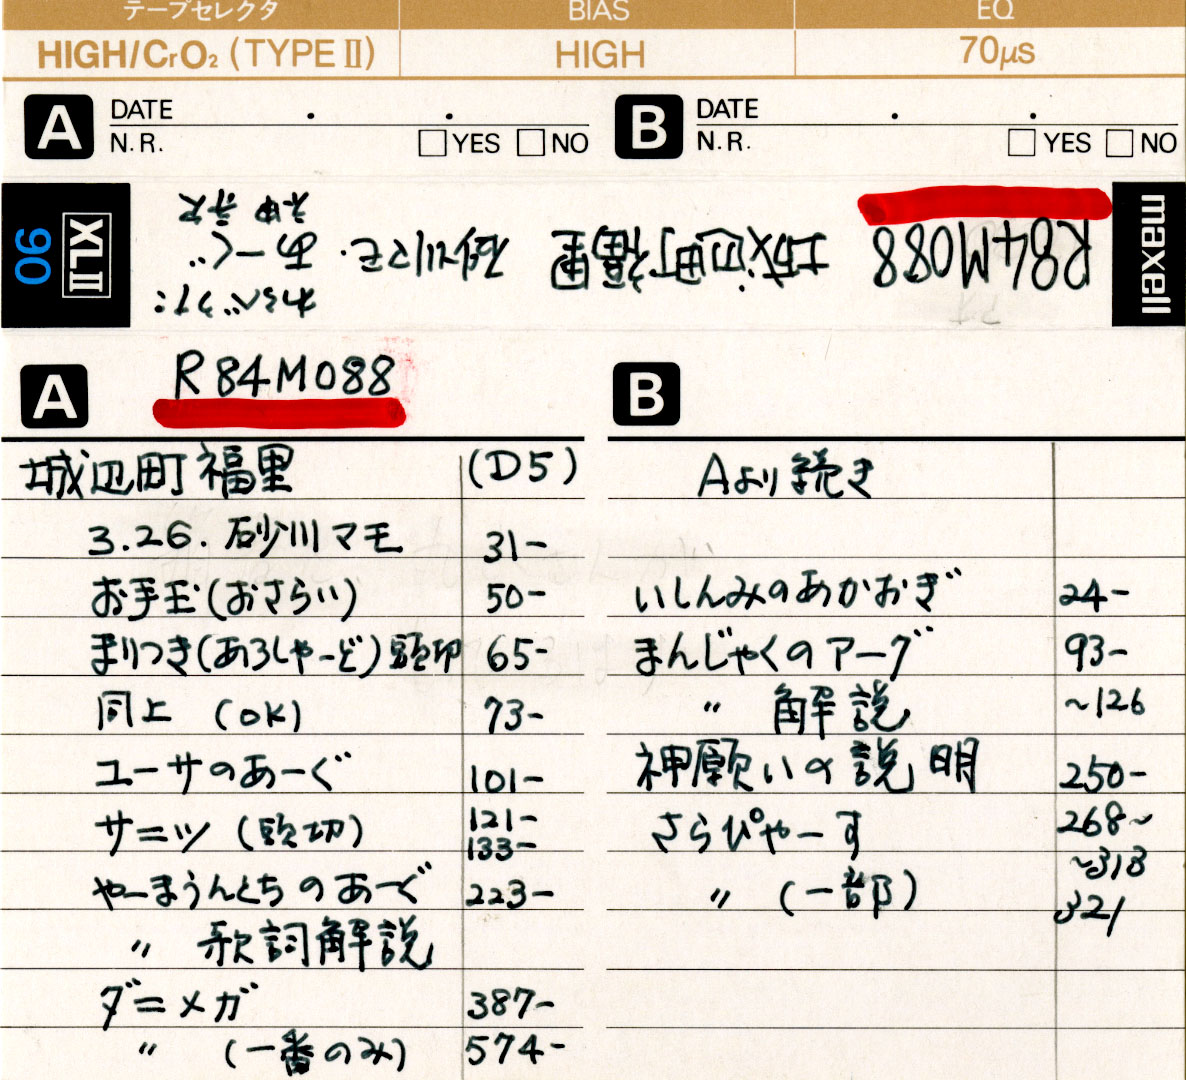 テープセレクタ BIAS EQ
HIGH/CrO₂ (TYPE II) HIGH 70μs
A DATE . . B DATE . .
N.R. □YES □NO N.R. □YES □NO
maxell
R84M088 城辺町福里 砂川マモ.
あーぐ
XLII 90
A R84M088 B
城辺町福里 (D5)
3.26. 砂川マモ 31-
お手玉(おさらい) 50-
まりつき(あろしゃーど)頭切 65-
同上 (OK) 73-
ユーサのあーぐ 101-
サニツ (頭切) 121-
133-
やーまうんとちのあーぐ 223-
〃 歌詞解説
ダニメガ 387-
〃 (一番のみ) 574-
Aより続き
いしんみのあかおぎ 24-
まんじゃくのアーグ 93-
〃 解説 ~126
神願いの説明 250-
さらぴやーす 268~
~318
〃 (一部) 321